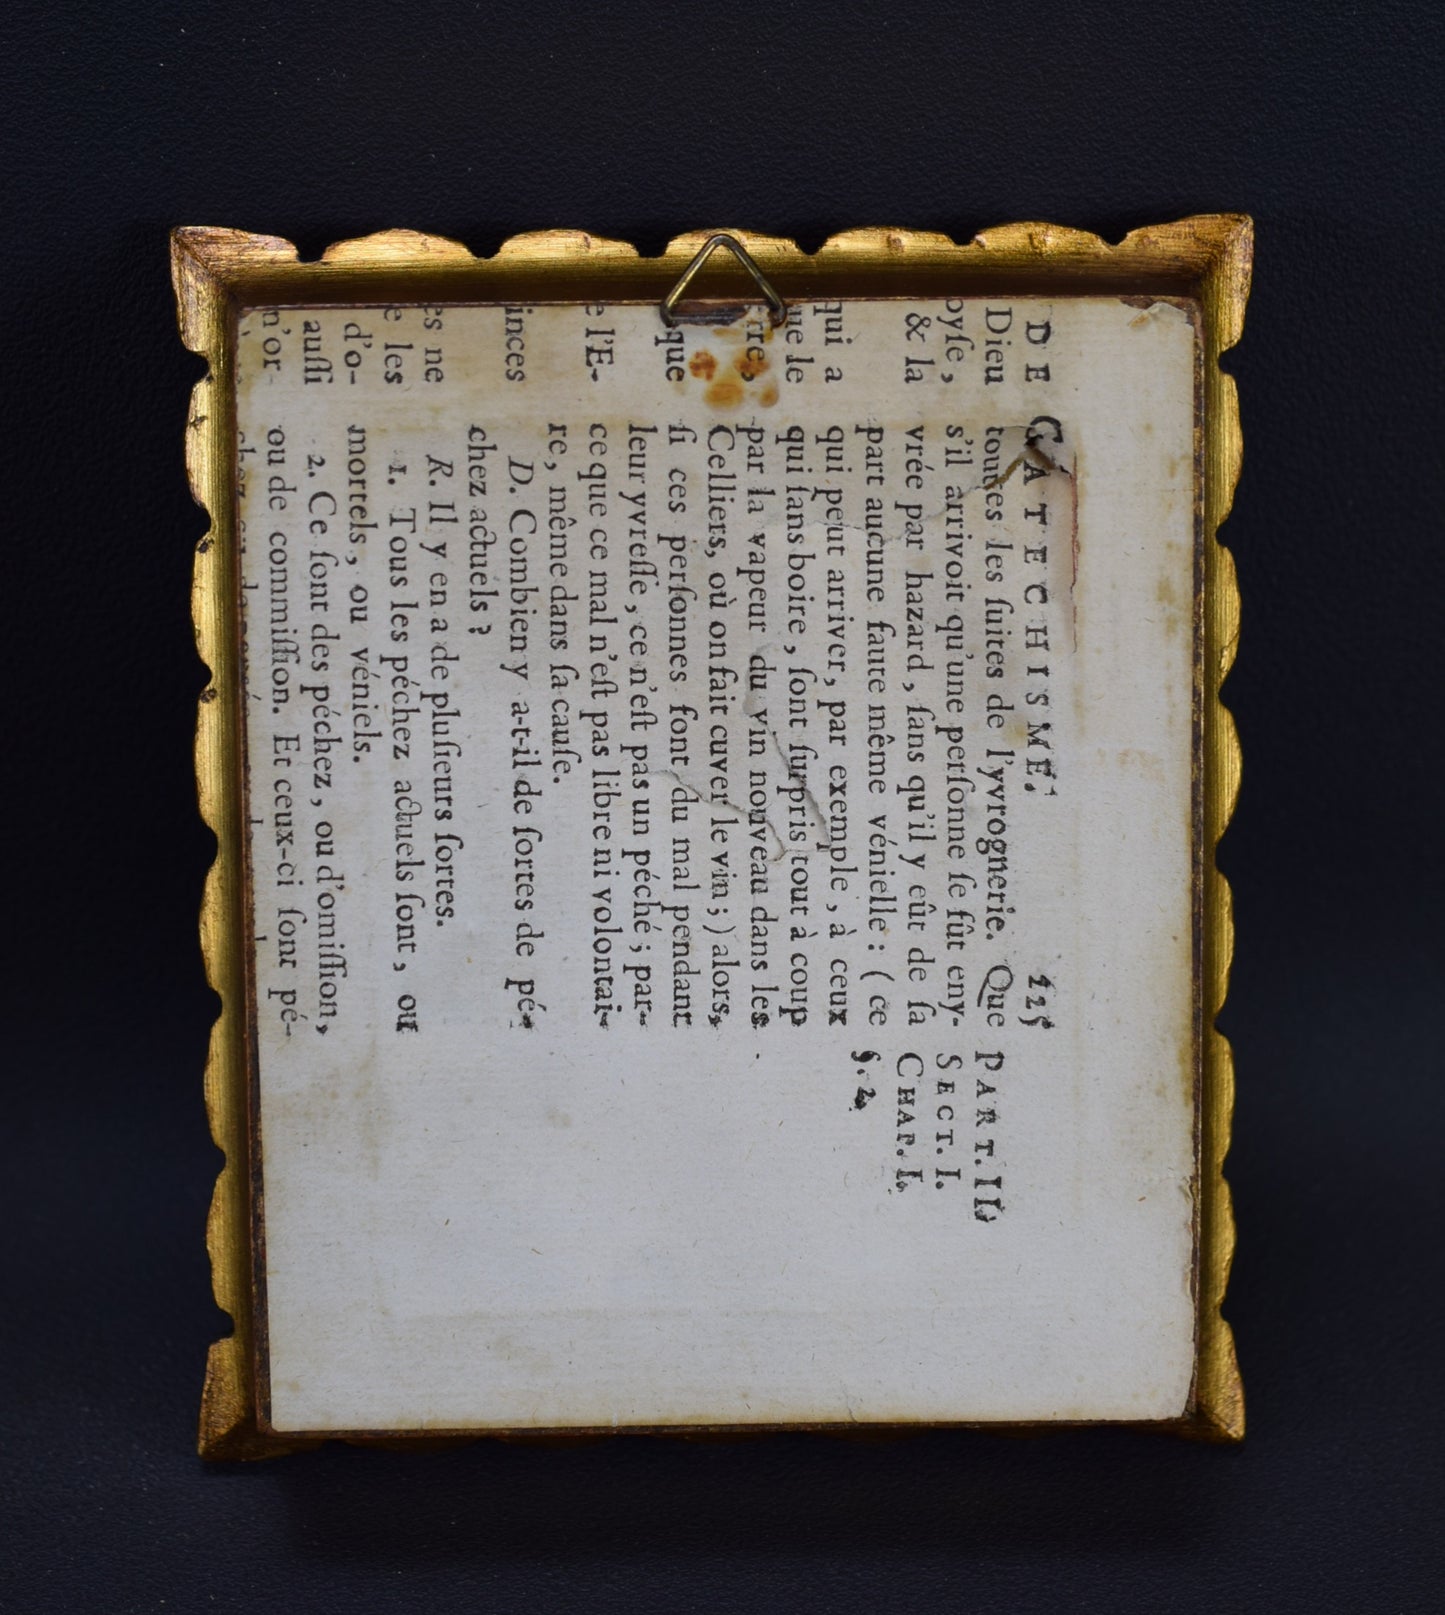 DE
Dieu
oyſe,
& la
qui a
ue le
rre,
que
e l'E-
inces
es ne
e les
d'o-
auſſi
n'or-
CATECHISME. 225
toutes les ſuites de l'yvrognerie. Que
s'il arrivoit qu'une perſonne ſe fût eny-
vrée par hazard, ſans qu'il y eût de ſa
part aucune faute même vénielle : (ce
qui peut arriver, par exemple, à ceux
qui ſans boire, ſont ſurpris tout à coup
par la vapeur du vin nouveau dans les
Celliers, où on fait cuver le vin;) alors,
ſi ces perſonnes font du mal pendant
leur yvreſſe, ce n'eſt pas un péché; par-
ce que ce mal n'eſt pas libre ni volontai-
re, même dans ſa cauſe.
D. Combien y a-t-il de ſortes de pé-
chez actuels ?
R. Il y en a de pluſieurs ſortes.
1. Tous les péchez actuels ſont, ou
mortels, ou véniels.
2. Ce ſont des péchez, ou d'omiſſion,
ou de commiſſion. Et ceux-ci ſont pé-
PART. II.
SECT. I.
CHAP. I.
§. 2.